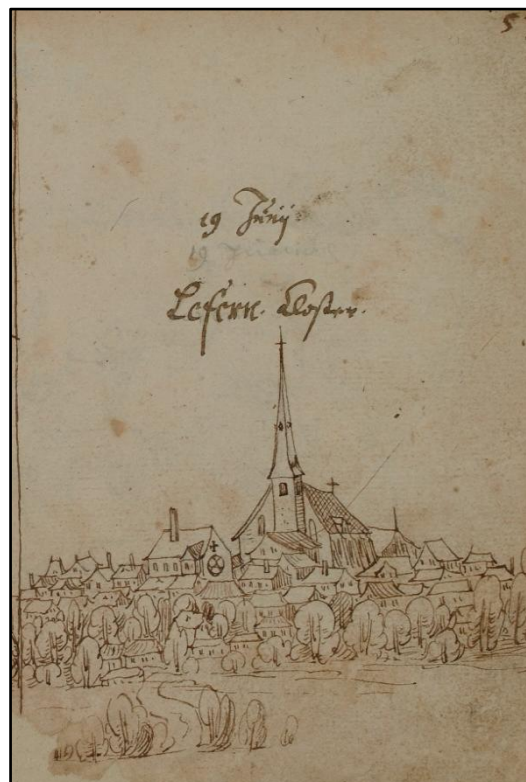 5
19 Junij
Lefern. Kloster.